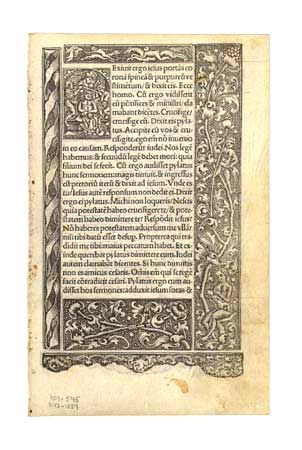 Exiuit ergo iesus portãs co
ronã spineã & purpureũ ve
stimẽtum/ & dixit eis. Ecce
homo. Cũ ergo vidissent
eũ põtifices & ministri/ cla
mabant dicẽtes. Crucifige/
crucifige eũ. Dixit eis pyla
tus. Accipite eũ vos & cru-
cifigite. ego eñ nõ inuenio
in eo causam. Responderũt iudei. Nos legẽ
habemus: & secũdũ legẽ debet mori: quia
filium dei se fecit. Cũ ergo audisset pylatus
hunc sermonem: magis timuit. & ingressus
est pretoriũ iterũ & dixit ad iesum. Vnde es
tu? Iesus autẽ responsum non dedit ei. Dixit
ergo ei pylatus. Michi non loqueris: Nescis
quia potestatẽ habeo crucifigere te/ & pote
statem habeo dimittere te? Respõdit iesus:
Nõ haberes potestatem aduersum me vllã:
nisi tibi datũ esset desup. Propterea qui tra
didit me tibi maius peccatum habet. Et ex
inde querebat pylatus dimittere eum. Iudei
autem clamabãt dicentes. Si hunc dimittis
non es amicus cesaris. Omnis eñ qui se regẽ
facit cõtradicit cesari. Pylatus ergo cum au
disset hos sermones: adduxit iesum foras: &